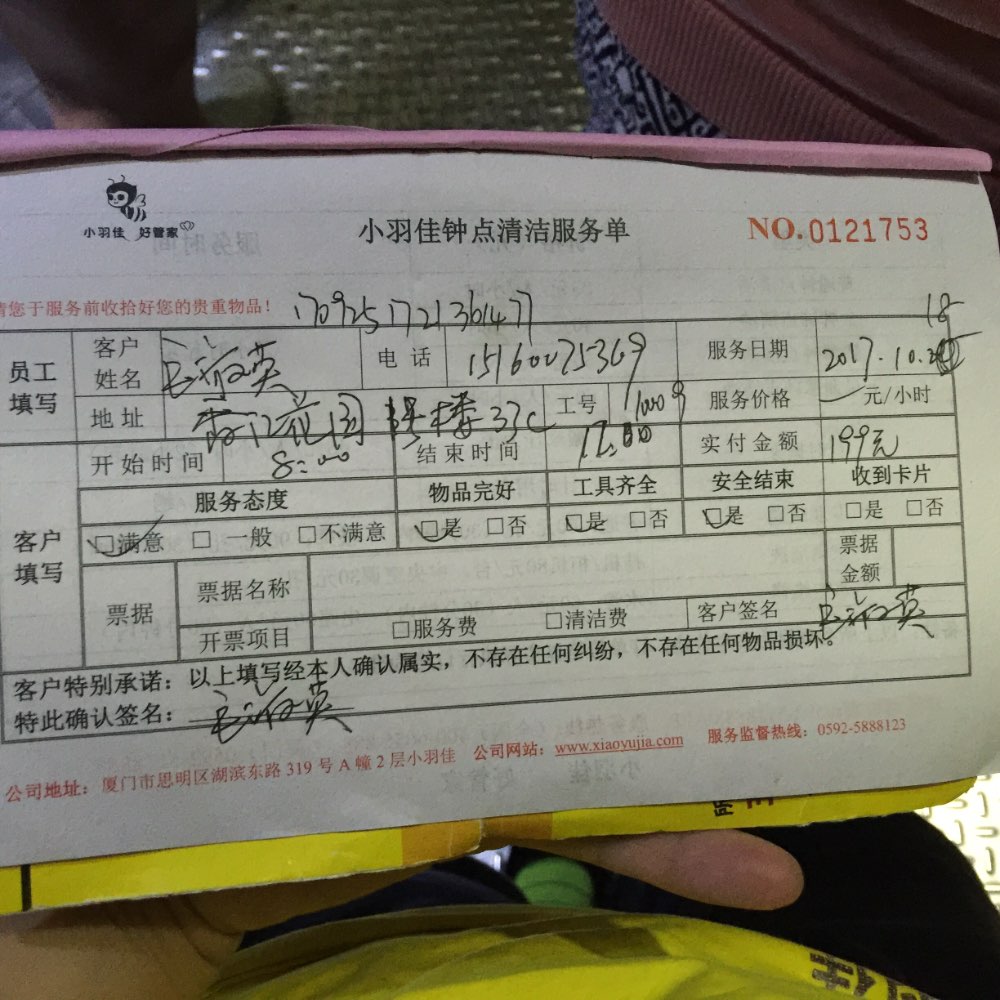 小羽佳 好管家
小羽佳钟点清洁服务单
NO.0121753
请您于服务前收拾好您的贵重物品！
1709251721361477
18
员工填写 客户姓名 英 电话 15160075369 服务日期 2017.10.
地址 花园 楼33C 工号 10009 服务价格 元/小时
开始时间 8:00 结束时间 12:00 实付金额 199元
客户填写 服务态度 物品完好 工具齐全 安全结束 收到卡片
□满意 □一般 □不满意 □是 □否 □是 □否 □是 □否 □是 □否
票据 票据名称 票据金额
开票项目 □服务费 □清洁费 客户签名 英
客户特别承诺：以上填写经本人确认属实，不存在任何纠纷，不存在任何物品损坏。
特此确认签名： 英
公司地址：厦门市思明区湖滨东路319号A幢2层小羽佳 公司网站：www.xiaoyujia.com 服务监督热线：0592-5888123